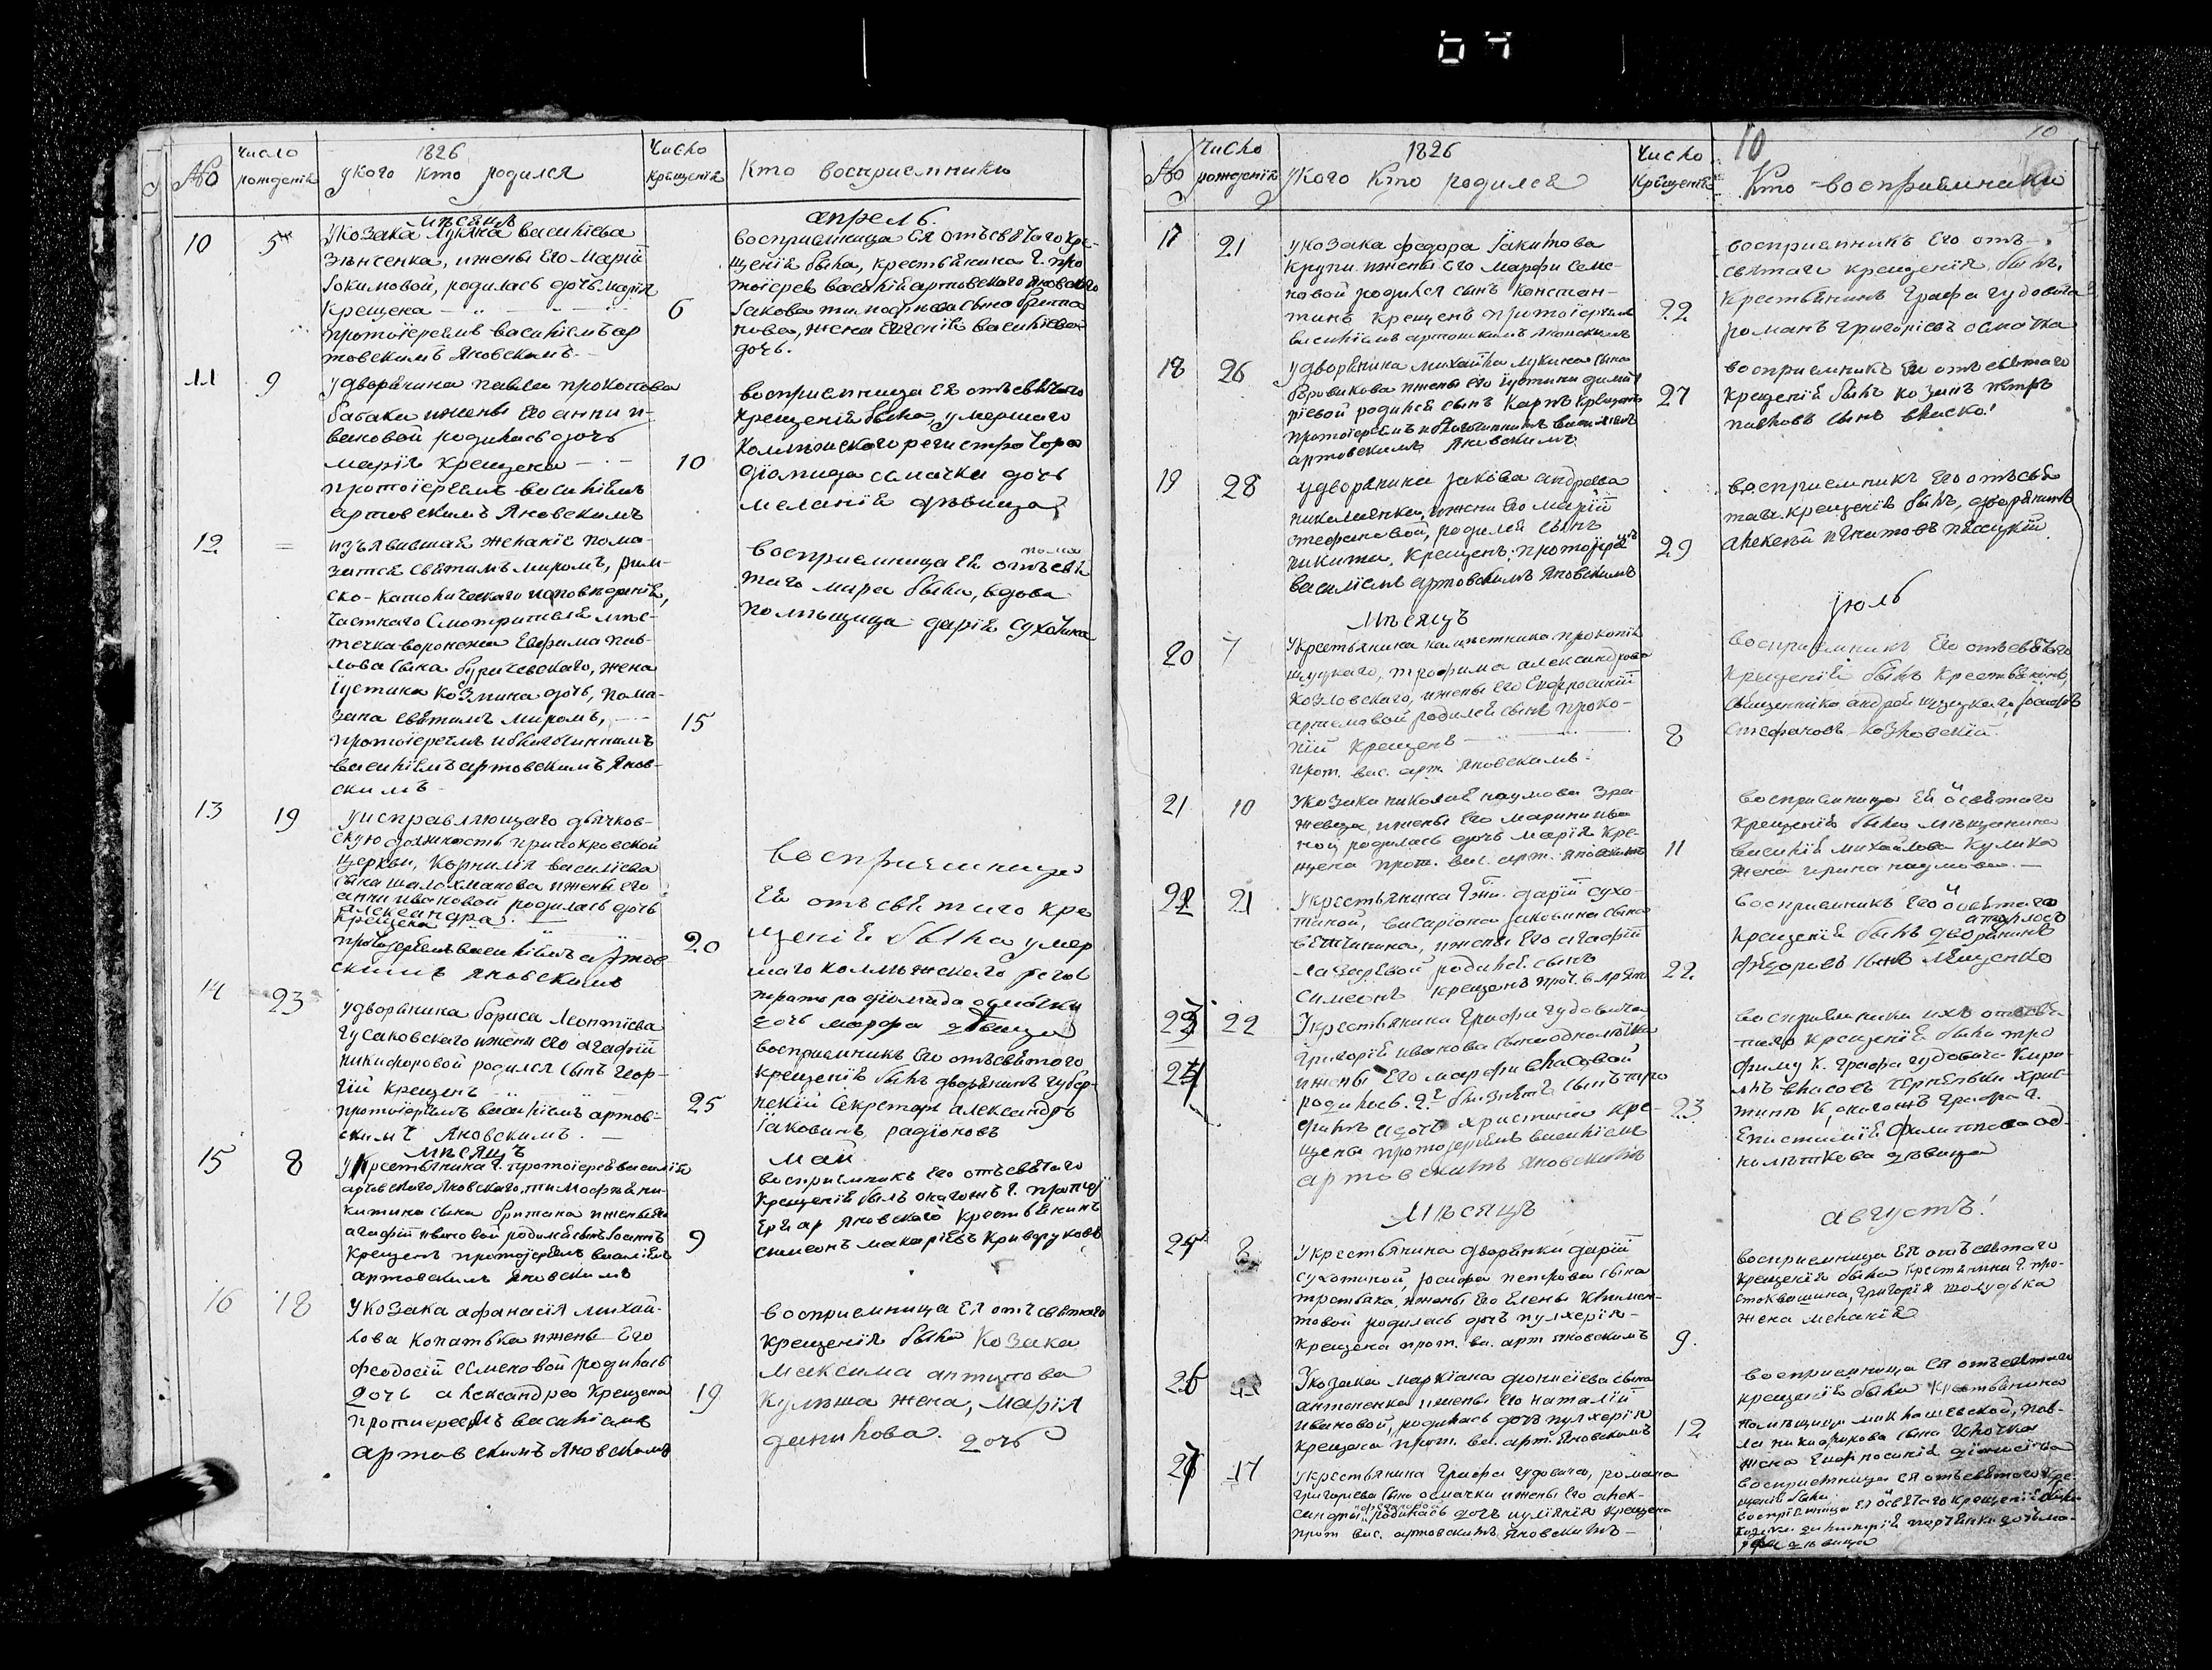 №
Число рожденія
1826
у кого кто родился
Число крещенія
кто восприемники
мѣсяцъ
апрель.
10
5
У козака Лукяна василіева
Зѣнченка, ижены его марiи
Іокимовой, родилась дочь марія
крещена
протоіереемъ василіемъ ар
товскимъ Яновскимъ.
6
восприемница Ея отъ святаго кре-
щенія была, крестьянина Г. про
тоіерея василія артовскаго Яновскаго
Іакова тимофѣева сына
жена василіева
дочь.
11
9
У дворянина павла прокопова
бабаки ижены его анны и-
вановой родилась дочь
марія крещена
протоіереемъ василіемъ
артовскимъ Яновскимъ
10
восприемница Ея отъ святаго
крещенія была умершаго
коллѣжскаго регистратора
діомида осмачки дочь
меланія дѣвица
12
=
изъявившая желаніе пома-
затся святымъ миромъ, рим-
ско-католическаго исповѣданія,
мѣс-
течка воронежа Ефима пав-
лова сына жена
Іустина козмина дочь, пома-
зана святымъ миромъ,
протоіереемъ и благочиннымъ
василіемъ артовскимъ Янов-
скимъ
15
восприемница Ея отъ свя
таго мира была, вдова
помѣщица дарія Сухотина
13
19
У исправляющаго дьячков-
скую должность при покровской
церкви, Корнилія василіева
сына ижены его
анны ивановой родилась дочь
александра
крещена
протоіереемъ василіемъ артов
скимъ Яновскимъ
20
восприемница
Ея отъ святаго кре
щенія была умер
шаго коллѣжскаго регис
тратора діомида осмачки
дочь марфа дѣвица
14
23
У дворянина бориса Леонтіева
Гусаковскаго ижены его агафіи
никифоровой родился сынъ геор-
гій крещенъ
протоіереемъ василіемъ артов-
скимъ Яновскимъ.
25
восприемникъ Его отъ святаго
крещенія былъ дворянинъ губер-
нскій Секретарь александръ
Іаковинъ радіоновъ
мѣсяцъ
май
15
8
У Крестьянина Г. протоіерея василія
артовскаго Яновскаго, тимофѣя ни-
китина сына ижены его
агафіи ивановой родился сынъ Іоаннъ
крещенъ протоіереемъ василіемъ
артовскимъ Яновскимъ
9
восприемникъ Его отъ святаго
крещенія былъ Г. протоі
ерея ар Яновскаго крестьянинъ
симеонъ макаріевъ Криворуковъ
16
18
У козака афанасія михай-
лова Копатька ижены Его
феодосіи семеновой родилась
дочь александра крещена
протиереемъ василіемъ
артовскимъ Яновскимъ
19
восприемница Ея отъ святаго
крещенія была козака
максима антипова
Кулѣша жена, марія
данилова дочь
№
Число рожденія
1826
у кого кто родился
Число крещенія
10
10
Кто восприемники
17
21
У козака федора Іакимова
Крупи ижены его марфы семе-
новой родился сынъ констан-
тинъ крещенъ протоіереемъ
василіемъ артовскимъ Яновскимъ
22
восприемникъ Его отъ
святаго крещенія былъ,
крестьянинъ Графа гудовича
романъ григоріевъ осмачка
18
26
У дворянина михайла лукина сына
боровикова ижены его Іустины димит
ріевой родился сынъ Карпъ крещенъ
протоіереемъ и благочиннымъ василіемъ
артовскимъ Яновскимъ
27
восприемникъ Ея отъ святаго
крещенія былъ козакъ петръ
павловъ сынъ
19
28
У дворянина Іакова андреева
николаенка, ижены его маріи
стефановой, родился сынъ
никита, крещенъ протоіерее
василіемъ артовскимъ Яновскимъ
29
восприемникъ Его отъ свя
таго крещенія былъ, дворянинъ
алексѣй игнатовъ пѣсоцкій
мѣсяцъ
Іюль
20
7
У крестьянина прокопія
трофима александрова
Козловскаго, ижены его Ефросиніи
артемовой родился сынъ проко-
пій крещенъ
прот. вас. арт. Яновскимъ.
8
восприемникъ Его отъ святаго
крещенія былъ крестьянинъ,
священника андрея Іосифъ
стефановъ Козловскій.
21
10
У козака николая наумова
ижены его марины ива
ной родилась дочь марія кре-
щена прот. вас. арт. Яновскимъ
11
восприемница Ея ѿ святаго
крещенія была мѣщанина
василія михайлова Кулика
жена ирина наумова.
22
21
У крестьянина дарiи сухо-
тиной, висаріона Іаковина сына
ижены его агафіи
родился сынъ
симеонъ крещенъ прот. в артов
22
восприемникъ Его ѿ святаго
крещенія былъ дворянинъ
федоровъ сынъ Лященко
23
22
У крестьянина Графа гудовича
Григорія иванова сына
24
ижены его марфы власовой
родилось 2 близнятъ сынъ тро
фимъ и дочь христина кре-
щены протоіереемъ василіемъ
артовскимъ Яновскимъ
23
восприемники ихъ отъ свя
таго крещенія были тро
фиму К. Графа гудовича Кири-
лъ власовъ хрис-
тинѣ Графа г.
Епистимія филиппова
дѣвица
мѣсяцъ
августъ
25
8
У крестьянина дворянки дарiи
сухотиной, Іосифа петрова сына
третьяка, ижены его Елены климен-
товой родилась дочь пулхерія
крещена прот. ва. арт Яновскимъ
9.
восприемница Ея отъ святаго
крещенія была крестянина Г. про-
Григорія
жена меланія
26
У козака маркіана діонисіева сына
антоненка ижены его наталіи
ивановой, родилась дочь пулхерія
крещена прот. ва. арт. Яновскимъ
12
восприемница Ея отъ святаго
крещенія была крестьянина
помѣщицы миклашевской, пав-
ла никифорова сына
жена Ефросинія діонисіева
27
17
У крестьянина Графа гудовича, романа
Григоріева сына осмачки ижены его алек-
сандры родилась дочь иуліянія крещена
прот вас. артовскимъ Яновскимъ
восприемница Ея отъ святаго кре-
щенія была
восприемница Ея ѿ святаго крещенія была
дѣвица